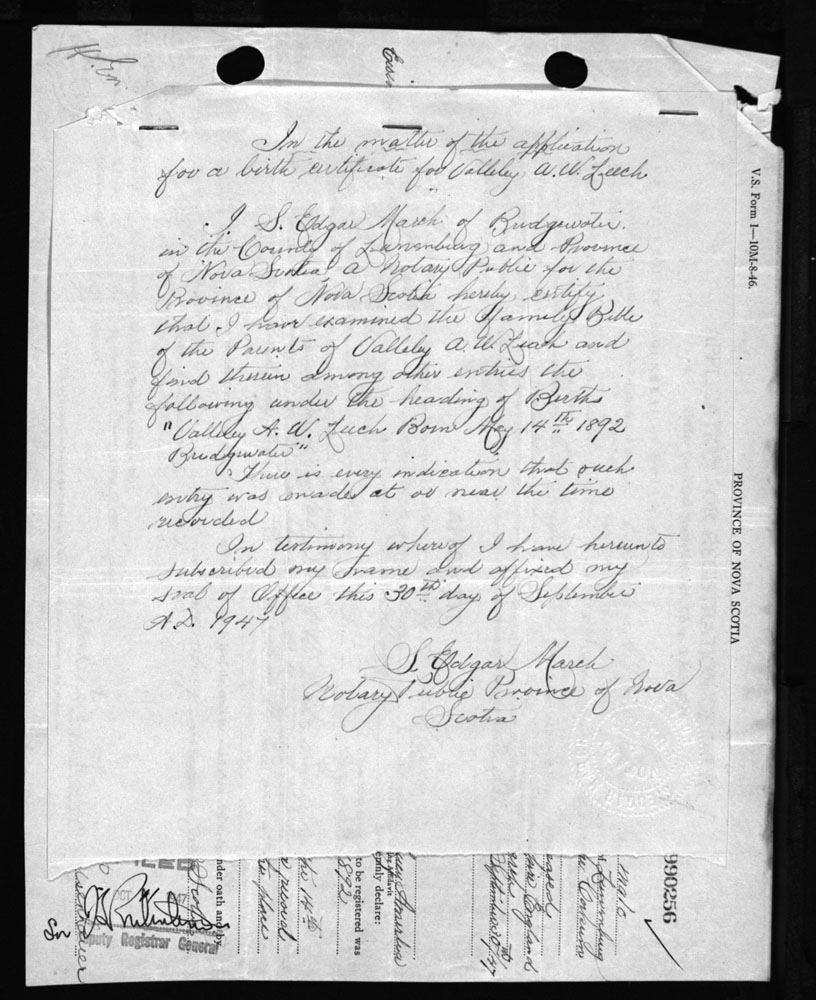 In the matter of the application
for a birth certificate for Valleley A.W. Zeech
I S. Edgar March of Bridgewater
in the County of Lunenburg and Province
of Nova Scotia a Notary Public for the
Province of Nova Scotia hereby certify
that I have examined the family Bible
of the Parents of Valleley A.W. Zeech and
find therein among other entries the
following under the heading of Births
"Valleley A. W. Zeech Born May 14th 1892
Bridgewater"
There is every indication that such
entry was made at or near the time
recorded
In testimony whereof I have hereunto
subscribed my name and affixed my
seal of Office this 30th day of September
A.D. 1947
S. Edgar March
Notary Public Province of Nova
Scotia
V.S. Form 1—10M-8-46.
PROVINCE OF NOVA SCOTIA
990256
Lunenburg
England
September 30/47
emnly declare:
to be registered was
1892
the 14th
record
place
nder oath and by
OCT
puty Registrar General